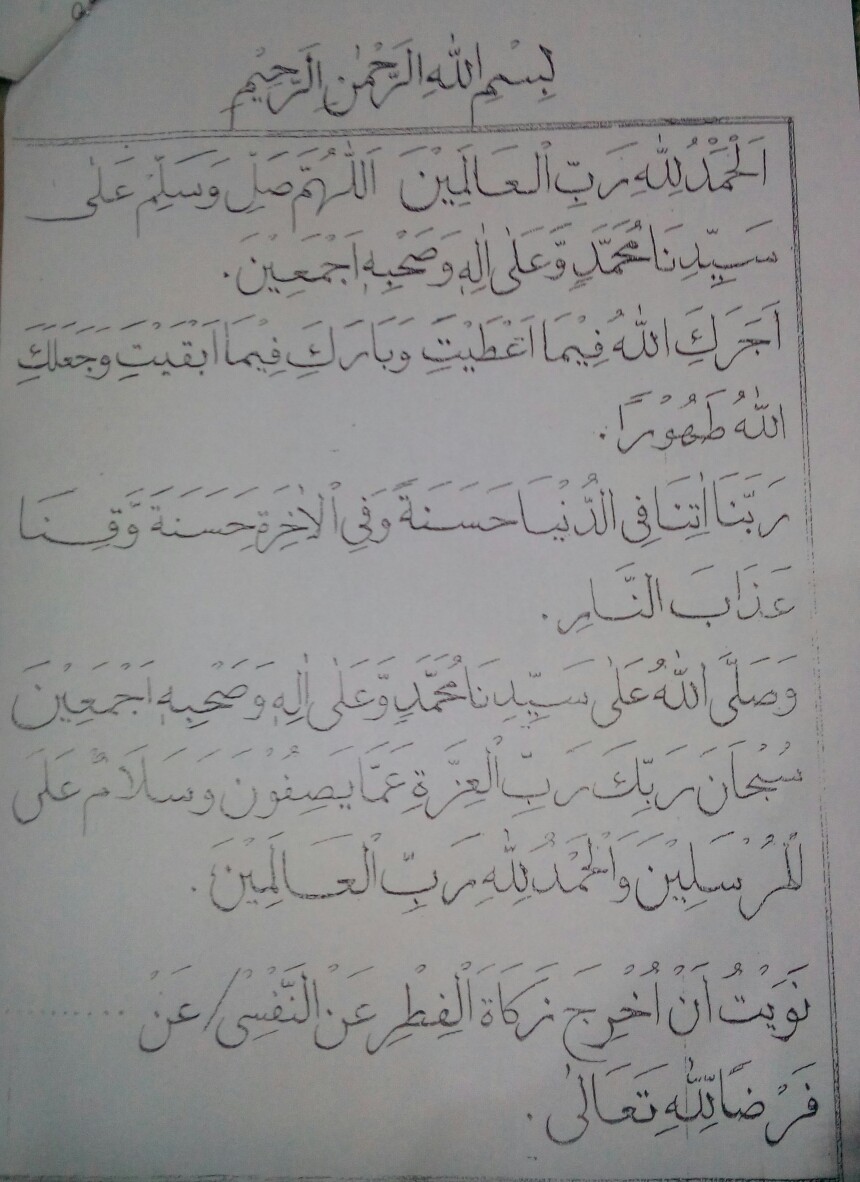 بِسْمِ اللهِ الرَّحْمٰنِ الرَّحِيْمِ
اَلْحَمْدُ لِلّٰهِ رَبِّ الْعَالَمِيْنَ اَللّٰهُمَّ صَلِّ وَسَلِّمْ عَلٰى
سَيِّدِنَا مُحَمَّدٍ وَّعَلٰى اٰلِهٖ وَصَحْبِهٖ اَجْمَعِيْنَ.
اَجَرَكِ اللهُ فِيْمَا اَعْطَيْتِ وَبَارَكِ فِيْمَا اَبْقَيْتِ وَجَعَلَكِ
اللهُ طَهُوْرًا.
رَبَّنَا اٰتِنَا فِى الدُّنْيَا حَسَنَةً وَفِي الْاٰخِرَةِ حَسَنَةً وَّقِنَا
عَذَابَ النَّارِ.
وَصَلَّى اللهُ عَلٰى سَيِّدِنَا مُحَمَّدٍ وَّعَلٰى اٰلِهٖ وَصَحْبِهٖ اَجْمَعِيْنَ
سُبْحَانَ رَبِّكَ رَبِّ الْعِزَّةِ عَمَّا يَصِفُوْنَ وَسَلَامٌ عَلَى
لْمُرْسَلِيْنَ وَالْحَمْدُ لِلّٰهِ رَبِّ الْعَالَمِيْنَ.
نَوَيْتُ اَنْ اُخْرِجَ زَكَاةَ الْفِطْرِ عَنْ النَّفْسِىْ/عَنْ ..........
فَرْضًا لِلّٰهِ تَعَالٰى.